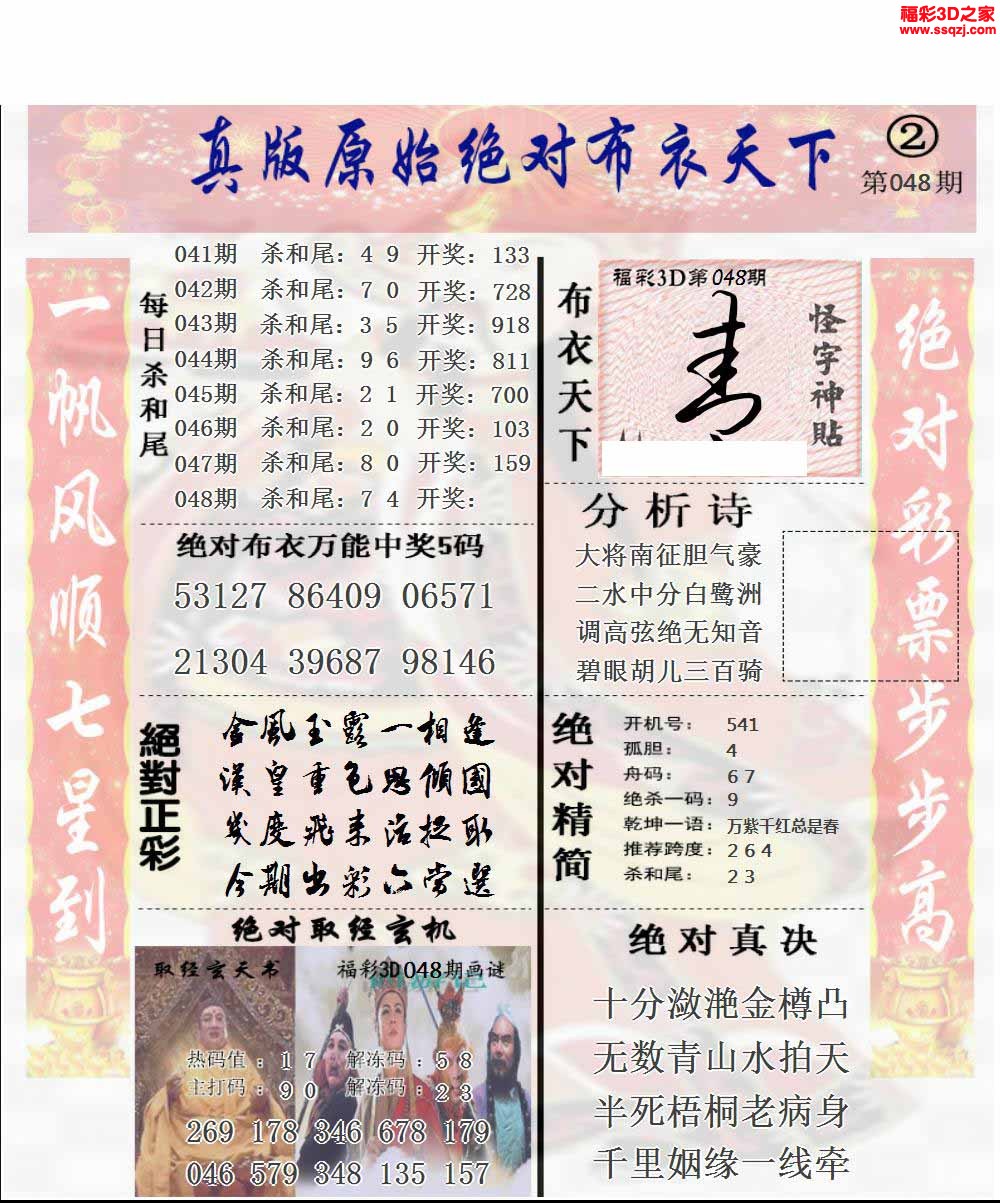 福彩3D之家
www.ssqzj.com
真版原始绝对布衣天下
②
第048期
一帆风顺七星到
每日杀和尾
041期 杀和尾：4 9 开奖：133
042期 杀和尾：7 0 开奖：728
043期 杀和尾：3 5 开奖：918
044期 杀和尾：9 6 开奖：811
045期 杀和尾：2 1 开奖：700
046期 杀和尾：2 0 开奖：103
047期 杀和尾：8 0 开奖：159
048期 杀和尾：7 4 开奖：
绝对布衣万能中奖5码
53127 86409 06571
21304 39687 98146
絕對正彩
金風玉露一相逢
漢皇重色思傾國
幾度飛来活捉取
今期出彩六當選
绝对取经玄机
取经玄天书
福彩3D048期画谜
热码值：1 7 解冻码：5 8
主打码：9 0 解冻码：2 3
269 178 346 678 179
046 579 348 135 157
布衣天下
福彩3D第048期
怪字神贴
分析诗
大将南征胆气豪
二水中分白鹭洲
调高弦绝无知音
碧眼胡儿三百骑
绝对精简
开机号： 541
孤胆： 4
舟码： 6 7
绝杀一码：9
乾坤一语：万紫千红总是春
推荐跨度：2 6 4
杀和尾： 2 3
绝对真决
十分潋滟金樽凸
无数青山水拍天
半死梧桐老病身
千里姻缘一线牵
绝对彩票步步高